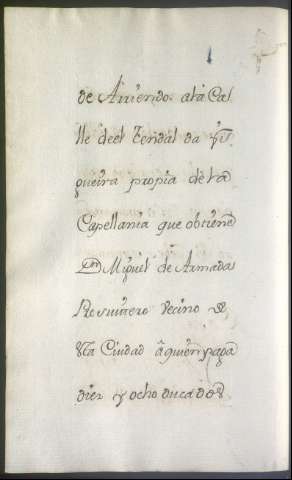 de Arriendo. ala Cal
lle deel Tendal da
gueira propia de la
Capellania que obtiene
Dn Miguel de Armada
Presvitero Vecino de
Sta Ciudad a quien paga
diez y ocho ducados